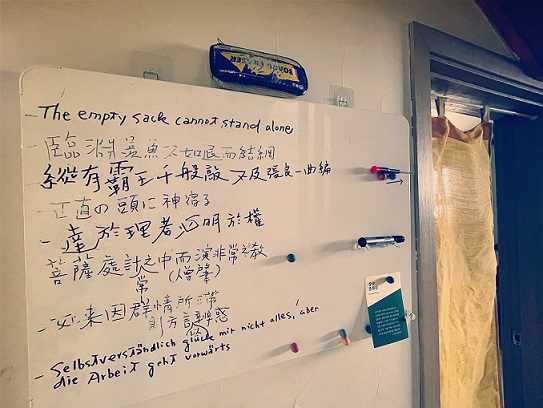 BOARD ERASER
- The empty sack cannot stand alone,
- 臨淵羨魚不如退而結網
縱有霸王千般敵 不及張良一曲編
- 正直の頭に神宿る
- 達於理者必明於權
菩薩處計之中而演非常之教
常
(僧肇)
- 必来因群情所滞
則方言
惑
- Selbstverständlich glückt mir nicht alles, aber
die Arbeit geht vorwärts